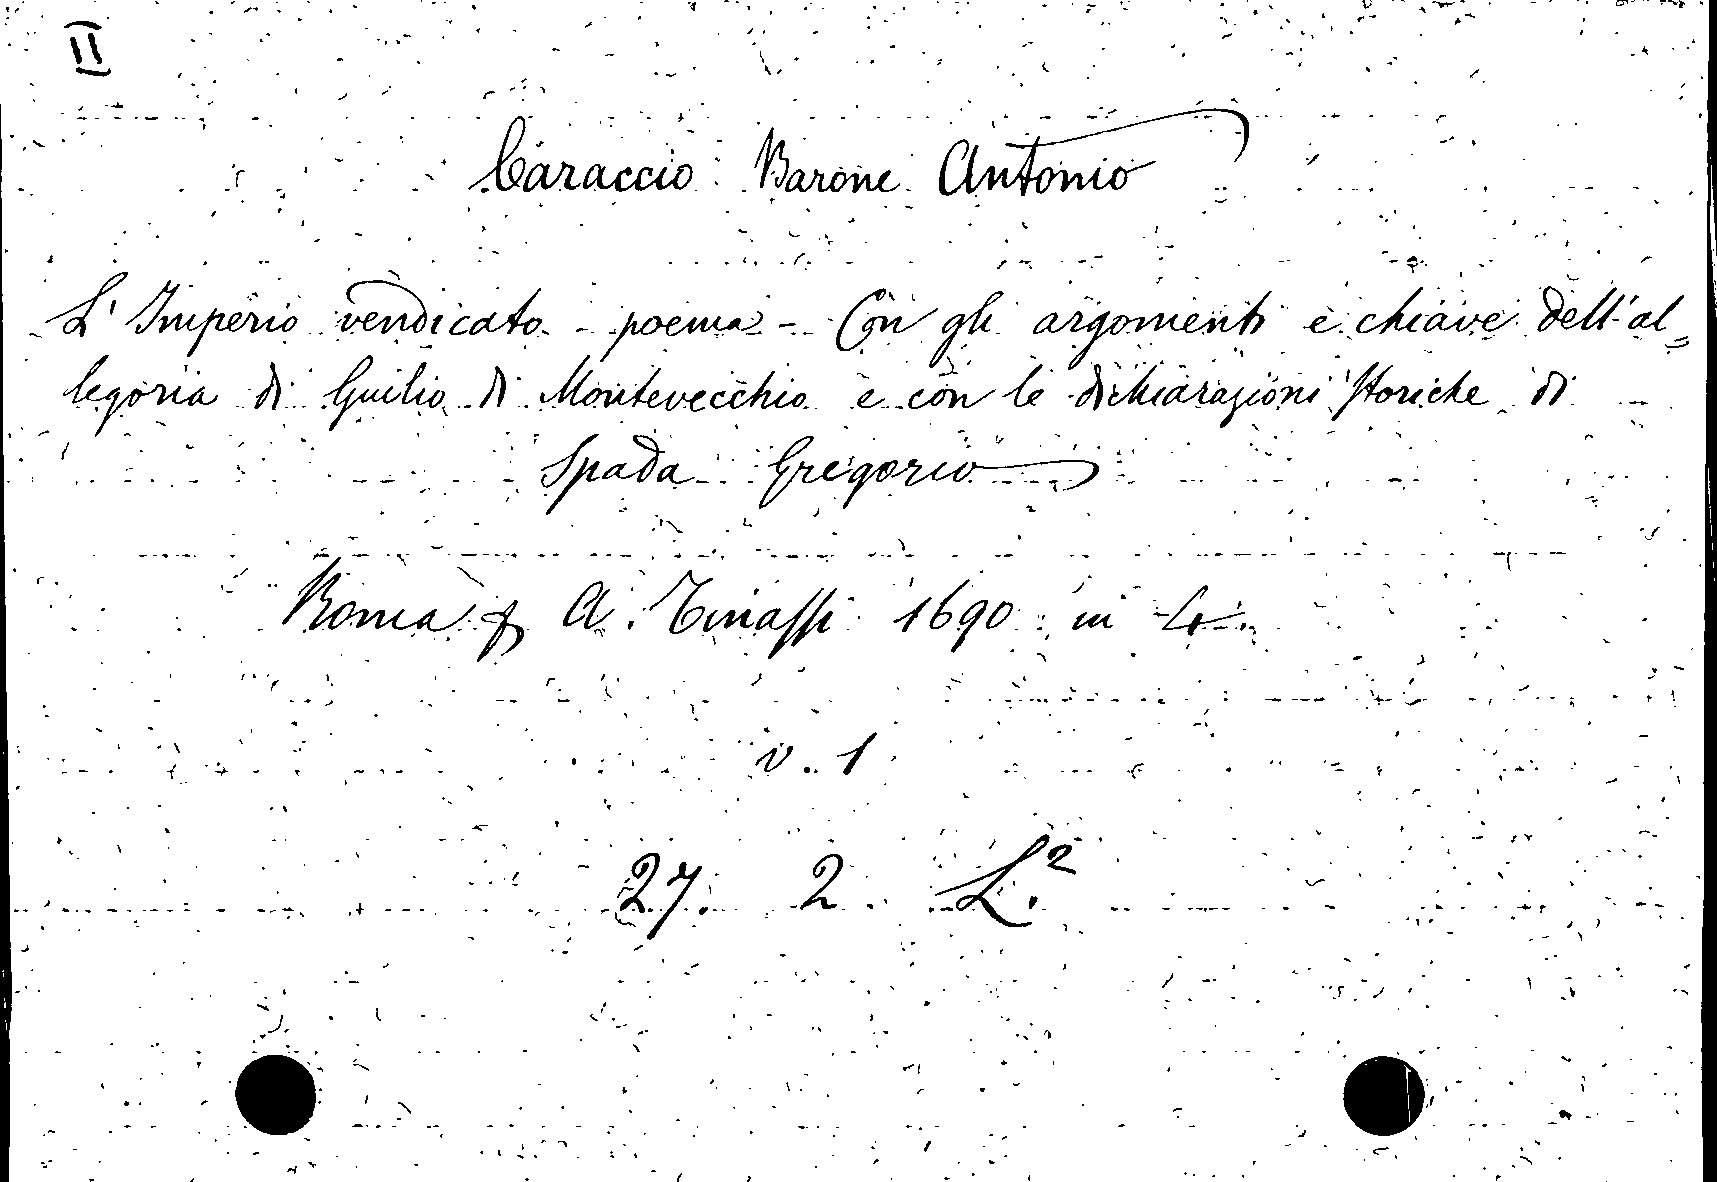 II
Caraccio Barone Antonio
L'Imperio vendicato - poema - Con gli argomenti e chiave dell'al„
legoria di Guilio di Montevecchio e con le dichiarazioni storiche di
Spada Gregorio
Roma A. Tinassi 1690 in 4.
v. 1
27. 2. L.²